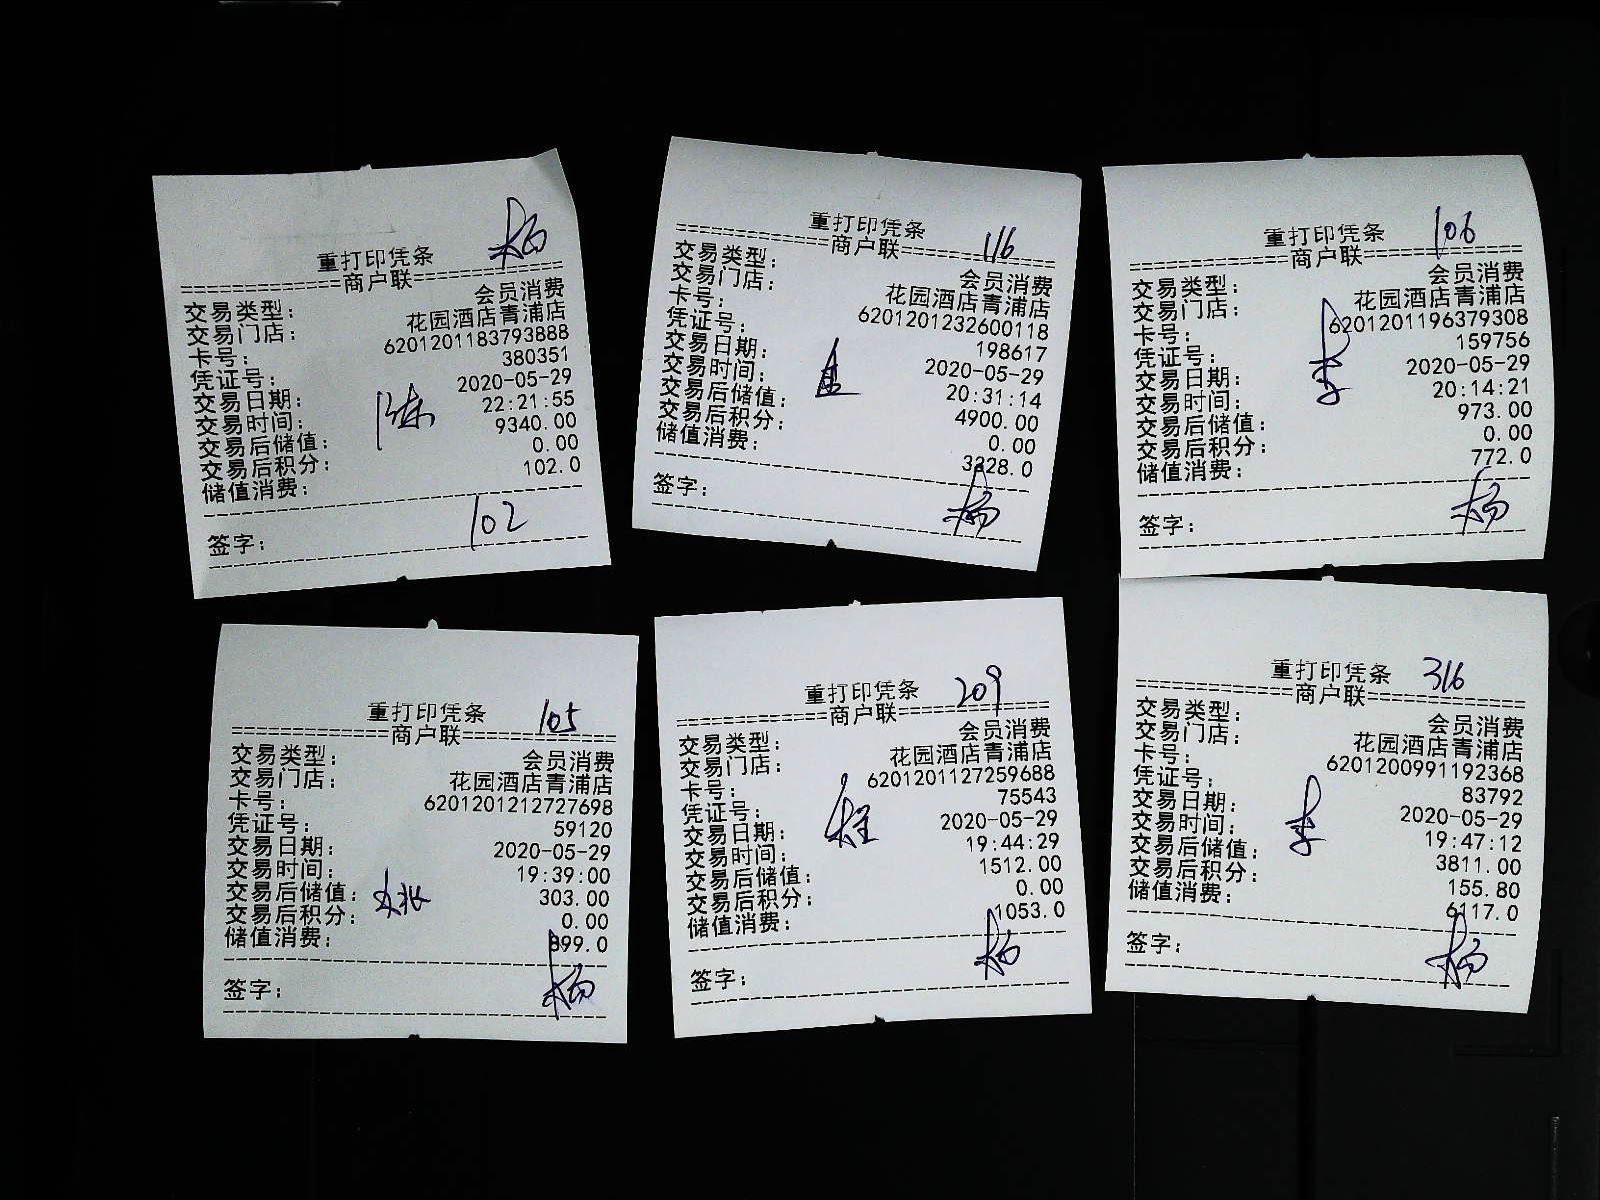 杨
重打印凭条
================商户联================
交易类型: 会员消费
交易门店: 花园酒店青浦店
卡号: 6201201183793888
凭证号: 380351
交易日期: 2020-05-29
交易时间: 22:21:55
交易后储值: 9340.00
交易后积分: 0.00
储值消费: 102.0
陈
签字:
102
重打印凭条
116
================商户联================
交易类型: 会员消费
交易门店: 花园酒店青浦店
卡号: 6201201232600118
凭证号: 198617
交易日期: 2020-05-29
交易时间: 20:31:14
交易后储值: 4900.00
交易后积分: 0.00
储值消费: 3228.0
签字:
杨
重打印凭条
106
================商户联================
交易类型: 会员消费
交易门店: 花园酒店青浦店
卡号: 6201201196379308
凭证号: 159756
交易日期: 2020-05-29
交易时间: 20:14:21
交易后储值: 973.00
交易后积分: 0.00
储值消费: 772.0
李
签字:
杨
重打印凭条
105
================商户联================
交易类型: 会员消费
交易门店: 花园酒店青浦店
卡号: 6201201212727698
凭证号: 59120
交易日期: 2020-05-29
交易时间: 19:39:00
交易后储值: 303.00
交易后积分: 0.00
储值消费: 899.0
姚
签字:
杨
重打印凭条
209
================商户联================
交易类型: 会员消费
交易门店: 花园酒店青浦店
卡号: 6201201127259688
凭证号: 75543
交易日期: 2020-05-29
交易时间: 19:44:29
交易后储值: 1512.00
交易后积分: 0.00
储值消费: 1053.0
程
签字:
杨
重打印凭条
316
================商户联================
交易类型: 会员消费
交易门店: 花园酒店青浦店
卡号: 6201200991192368
凭证号: 83792
交易日期: 2020-05-29
交易时间: 19:47:12
交易后储值: 3811.00
交易后积分: 155.80
储值消费: 6117.0
李
签字:
杨